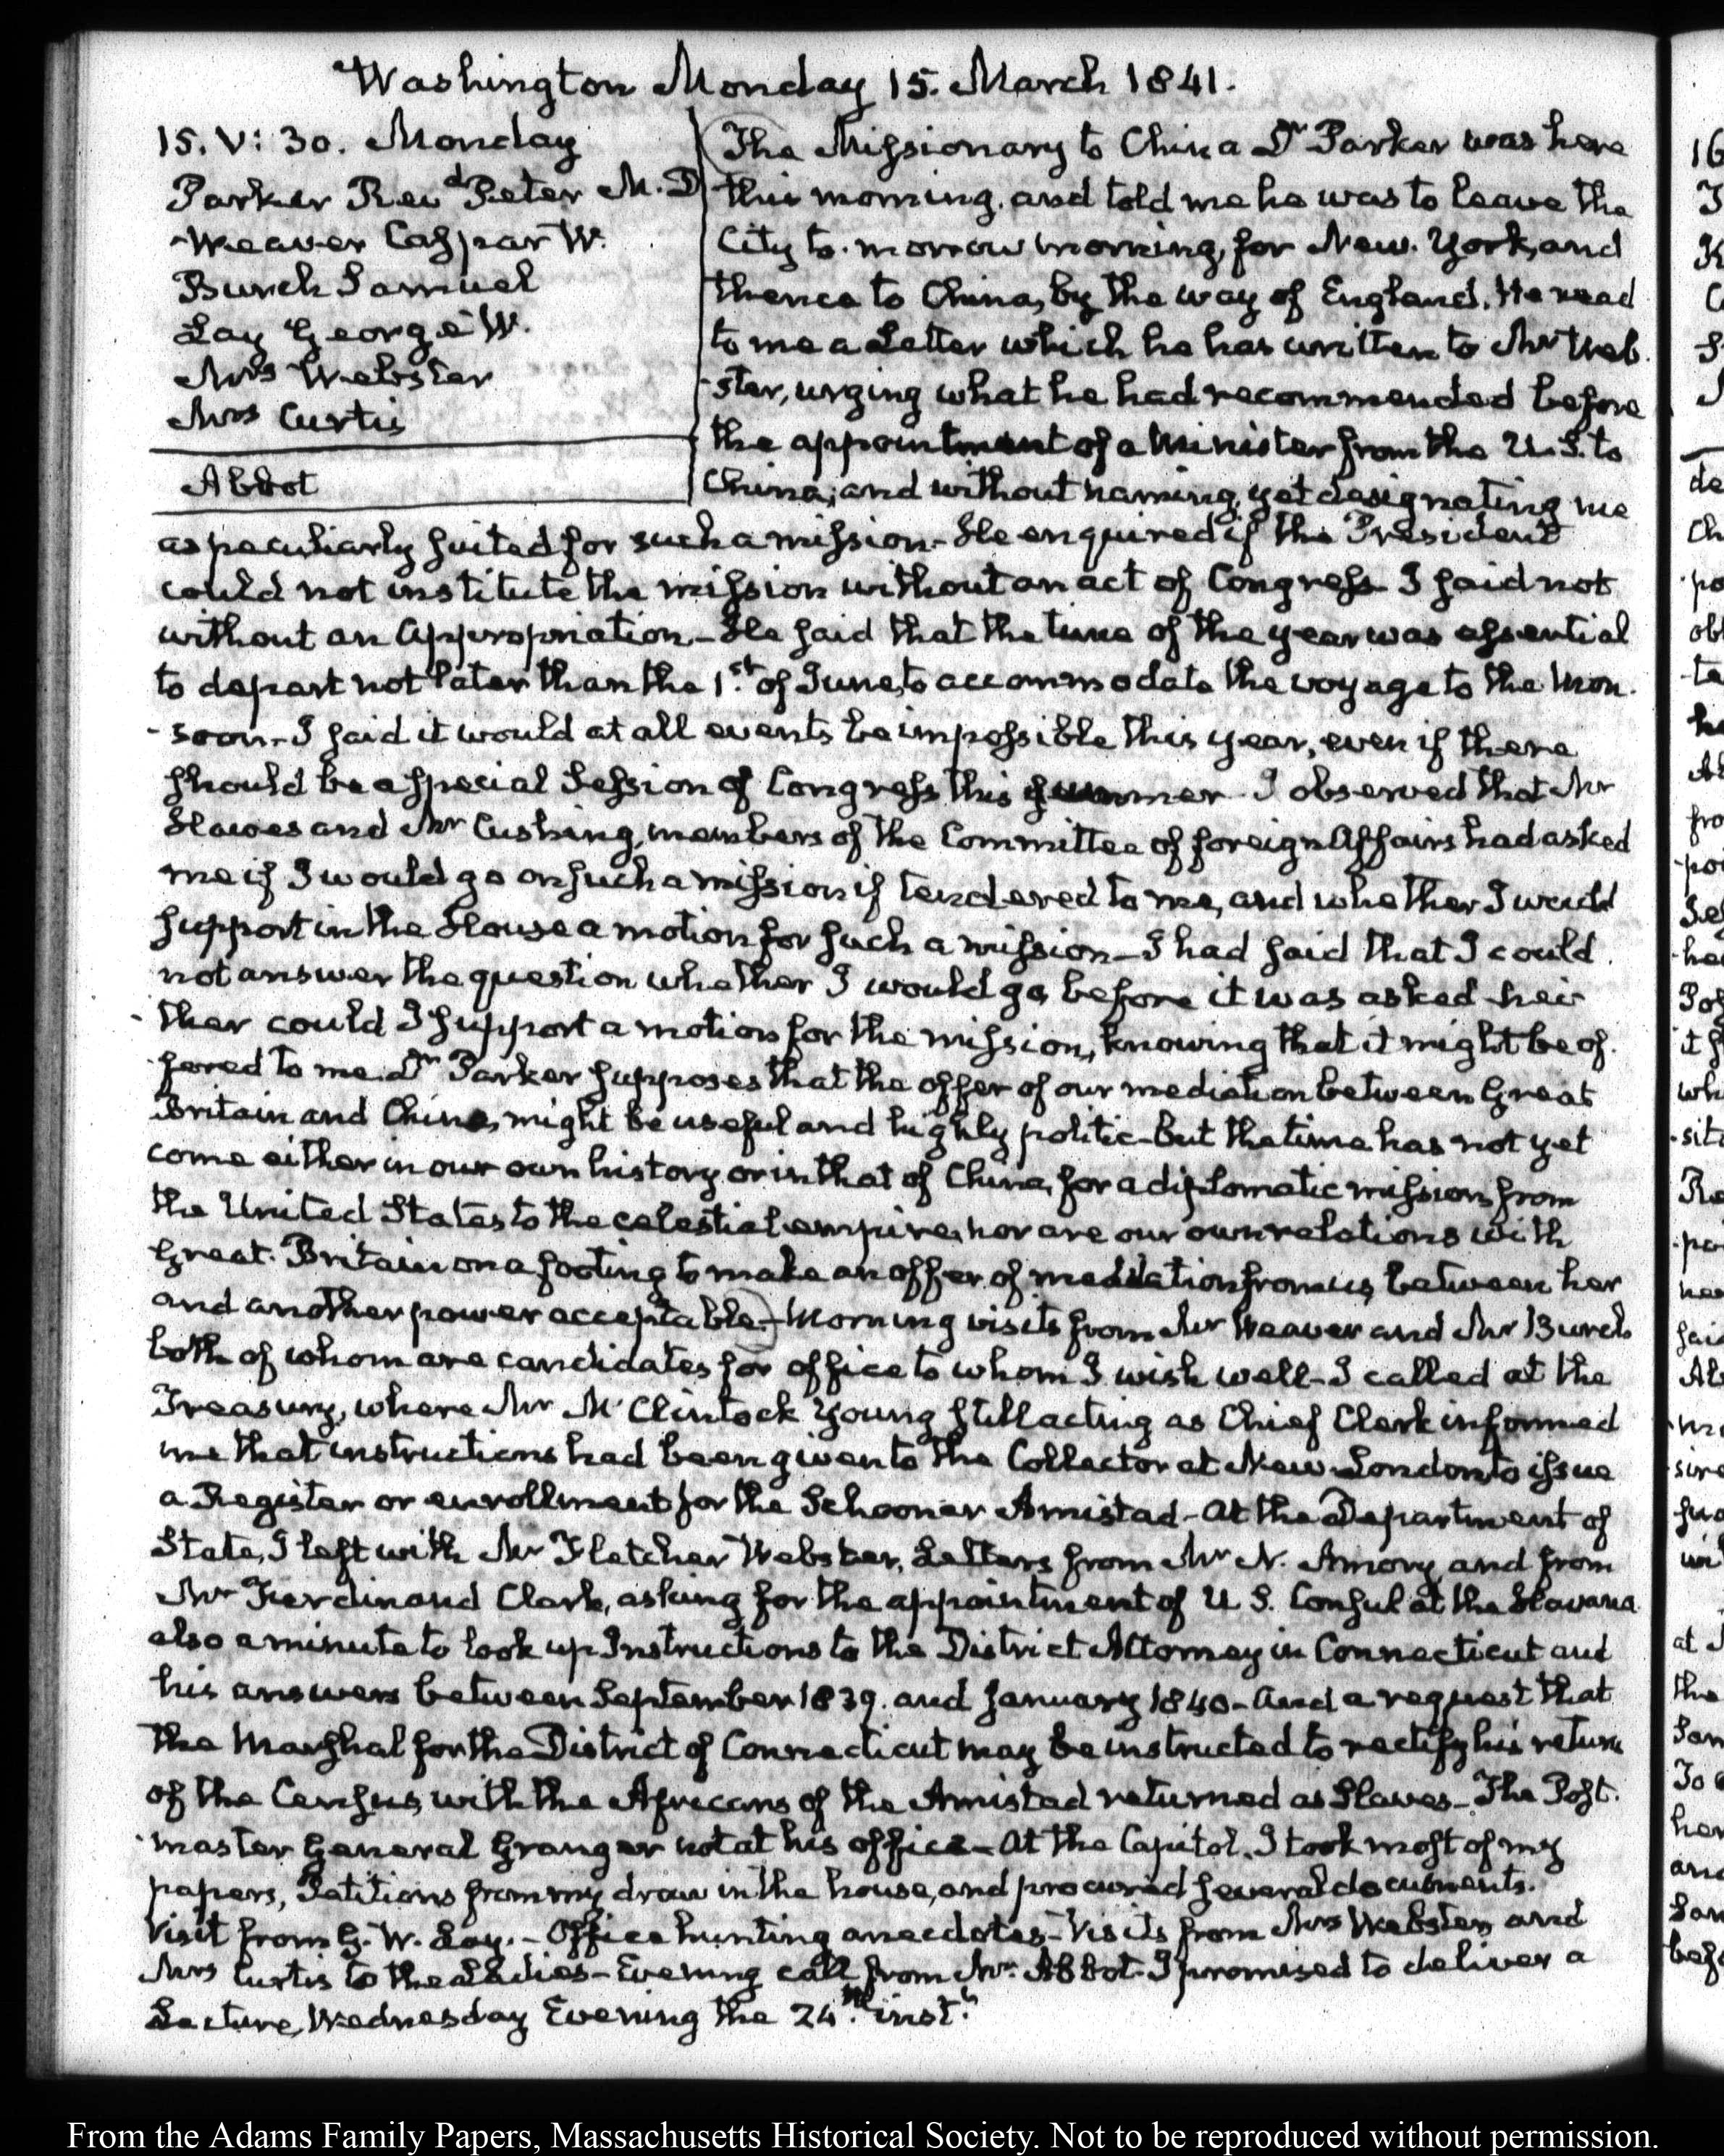 Washington Monday 15. March 1841.
15. V: 30. Monday
Parker Revd Peter M.D
Weaver Casspar W.
Burch Samuel
Lay George W.
Mrs Webster
Mrs Curtis
Abbot
The Missionary to China Dr Parker was here
this morning, and told me he was to leave the
City to-morrow morning, for New-York, and
thence to China, by the way of England. He read
to me a Letter which he has written to Mr Web-
-ster, urging what he had recommended before
the appointment of a Minister from the U.S. to
China; and without naming, yet designating me
as peculiarly suited for such a mission— He enquired if the President
could not institute the mission without an act of Congress— I said not
without an Appropriation,— He said that the time of the year was essential
to depart not later than the 1st. of June, to accommodate the voyage to the Mon-
-soon— I said it would at all events be impossible this year, even if there
should be a special Session of Congress this summer. I observed that Mr
Hawes and Mr Cushing, members of the Committee of foreign Affairs had asked
me if I would go on such a mission if tendered to me, and whether I would
support in the House a motion for such a mission— I had said that I could
not answer the question whether I would go, before it was asked nei-
-ther could I support a motion for the mission, knowing that it might be of-
-fered to me. Dr Parker supposes that the offer of our mediation between Great
Britain and China, might be useful and highly politic— But the time has not yet
come either in our own history or in that of China, for a diplomatic mission from
the United States to the celestial empire, nor are our own relations with
Great-Britain on a footing to make an offer of mediation from us, between her
and another power acceptable.— Morning visits from Mr Weaver and Mr Burch
both of whom are candidates for office to whom I wish well— I called at the
Treasury, where Mr McClintock Young still acting as Chief Clerk informed
me that instructions had been given to the Collector at New-London to issue
a Register or enrollment for the Schooner Amistad— At the Department of
State, I left with Mr Fletcher Webster, Letters from Mr N. Amory, and from
Mr Ferdinand Clark, asking for the appointment of U.S. Consul at the Havana
also a minute to look up Instructions to the District Attorney in Connecticut and
his answers between September 1839. and January 1840— And a request that
the Marshal for the District of Connecticut may be instructed to rectify his return
of the Census, with the Africans of the Amistad returned as Slaves— The Post-
-master General Granger not at his office— At the Capitol, I took most of my
papers, Petitions from my draw in the house, and procured several documents.
Visit from G. W. Lay.— Office hunting anecdotes— Visits from Mrs Webster, and
Mrs Curtis to the Ladies— Evening call from Mr. Abbot. I promised to deliver a
Lecture, Wednesday Evening the 24th. inst.
From the Adams Family Papers, Massachusetts Historical Society. Not to be reproduced without permission.